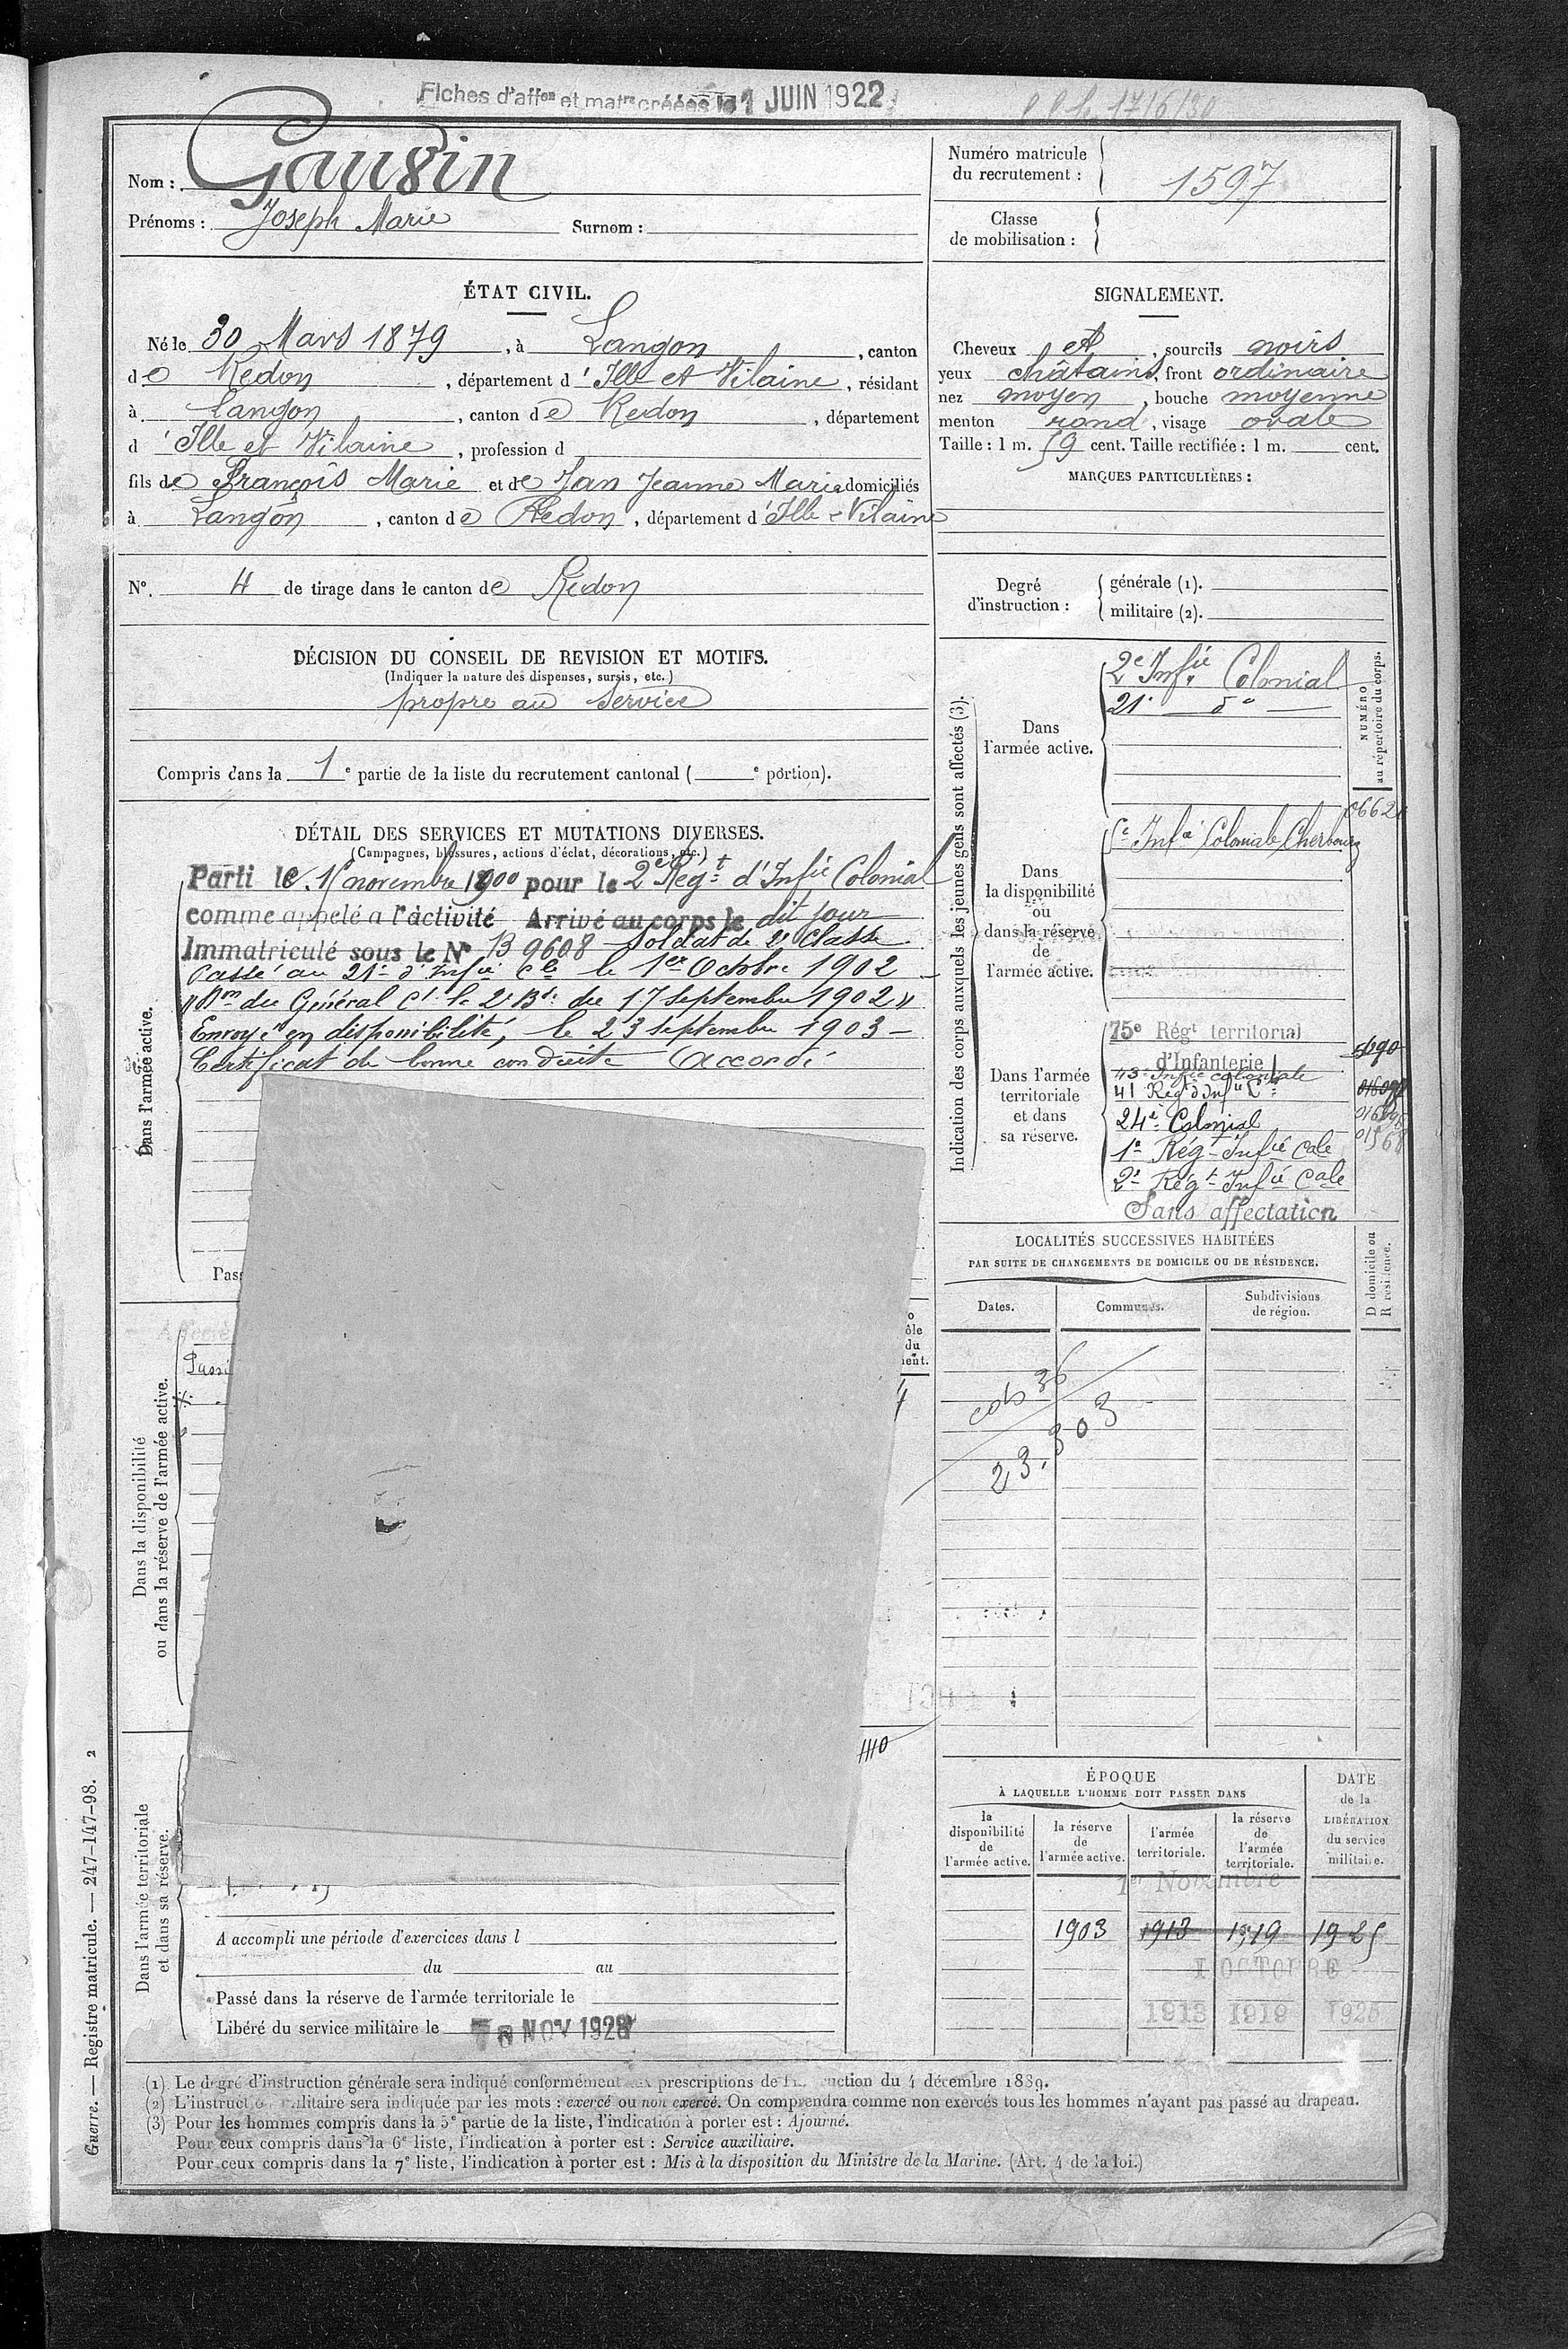 Fiches d'affon et matre créées le 1 JUIN 1922
Nom : Gausin
Prénoms : Joseph Marie Surnom :
Numéro matricule du recrutement : 1597
Classe de mobilisation :
ÉTAT CIVIL.
Né le 30 Mars 1879, à Langon, canton
de Redon, département d'Ille et Vilaine, résidant
à Langon, canton de Redon, département
d'Ille et Vilaine, profession d
fils de François Marie et de Jan Jeanne Marie domiciliés
à Langon, canton de Redon, département d'Ille-Vilaine
No. 4 de tirage dans le canton de Redon
DÉCISION DU CONSEIL DE REVISION ET MOTIFS.
(Indiquer la nature des dispenses, sursis, etc.)
propre au service
Compris dans la 1e partie de la liste du recrutement cantonal ( e portion).
DÉTAIL DES SERVICES ET MUTATIONS DIVERSES.
(Campagnes, blessures, actions d'éclat, décorations, etc.)
Dans l'armée active.
Parti le 16 novembre 1900 pour le 2e Régt d'Infie Colonial
comme appelé a l'activité Arrivé au corps le dit jour
Immatriculé sous le No B 9608 Soldat de 2e classe
Passé au 21e d'Infie Cle le 1er Octobre 1902
Don du Général Ct la 2e Bde du 17 Septembre 1902
Envoyé en disponibilité, le 23 septembre 1903
Certificat de bonne conduite Accordé
Pas
Dans la disponibilité
ou dans la réserve de l'armée active.
Passé
Dans l'armée territoriale
et dans sa réserve.
A accompli une période d'exercices dans l
du au
Passé dans la réserve de l'armée territoriale le
Libéré du service militaire le NOV 1928
SIGNALEMENT.
Cheveux et, sourcils noirs
yeux châtains, front ordinaire
nez moyen, bouche moyenne
menton rond, visage ovale
Taille : 1 m. 59 cent. Taille rectifiée : 1 m. cent.
MARQUES PARTICULIÈRES :
Degré d'instruction :
générale (1).
militaire (2).
Indication des corps auxquels les jeunes gens sont affectés (3).
NUMÉRO au répertoire du corps.
Dans l'armée active.
2e Infie Colonial
21e do
Dans la disponibilité ou dans la réserve de l'armée active.
Infie Coloniale Cherbourg
Dans l'armée territoriale et dans sa réserve.
75e Régt territorial
d'Infanterie
43e Infie coloniale
41 Régt d'Infie
24e Colonial
1e Régt Infie Cale
2e Régt Infie Cale
Sans affectation
LOCALITÉS SUCCESSIVES HABITÉES
PAR SUITE DE CHANGEMENTS DE DOMICILE OU DE RÉSIDENCE.
Dates. Communes. Subdivisions de région.
D domicile ou R résidence.
ÉPOQUE
À LAQUELLE L'HOMME DOIT PASSER DANS
la disponibilité de l'armée active.
la réserve de l'armée active.
l'armée territoriale.
la réserve de l'armée territoriale.
DATE de la LIBÉRATION du service militaire.
1er Novembre
1903 1913 1919 1925
1 OCTOBRE
1913 1919 1925
(1) Le degré d'instruction générale sera indiqué conformément aux prescriptions de l'instruction du 4 décembre 1889.
(2) L'instruction militaire sera indiquée par les mots : exercé ou non exercé. On comprendra comme non exercés tous les hommes n'ayant pas passé au drapeau.
(3) Pour les hommes compris dans la 5e partie de la liste, l'indication à porter est : Ajourné.
Pour ceux compris dans la 6e liste, l'indication à porter est : Service auxiliaire.
Pour ceux compris dans la 7e liste, l'indication à porter est : Mis à la disposition du Ministre de la Marine. (Art. 4 de la loi.)
Guerre. — Registre matricule. — 247-147-98. 2